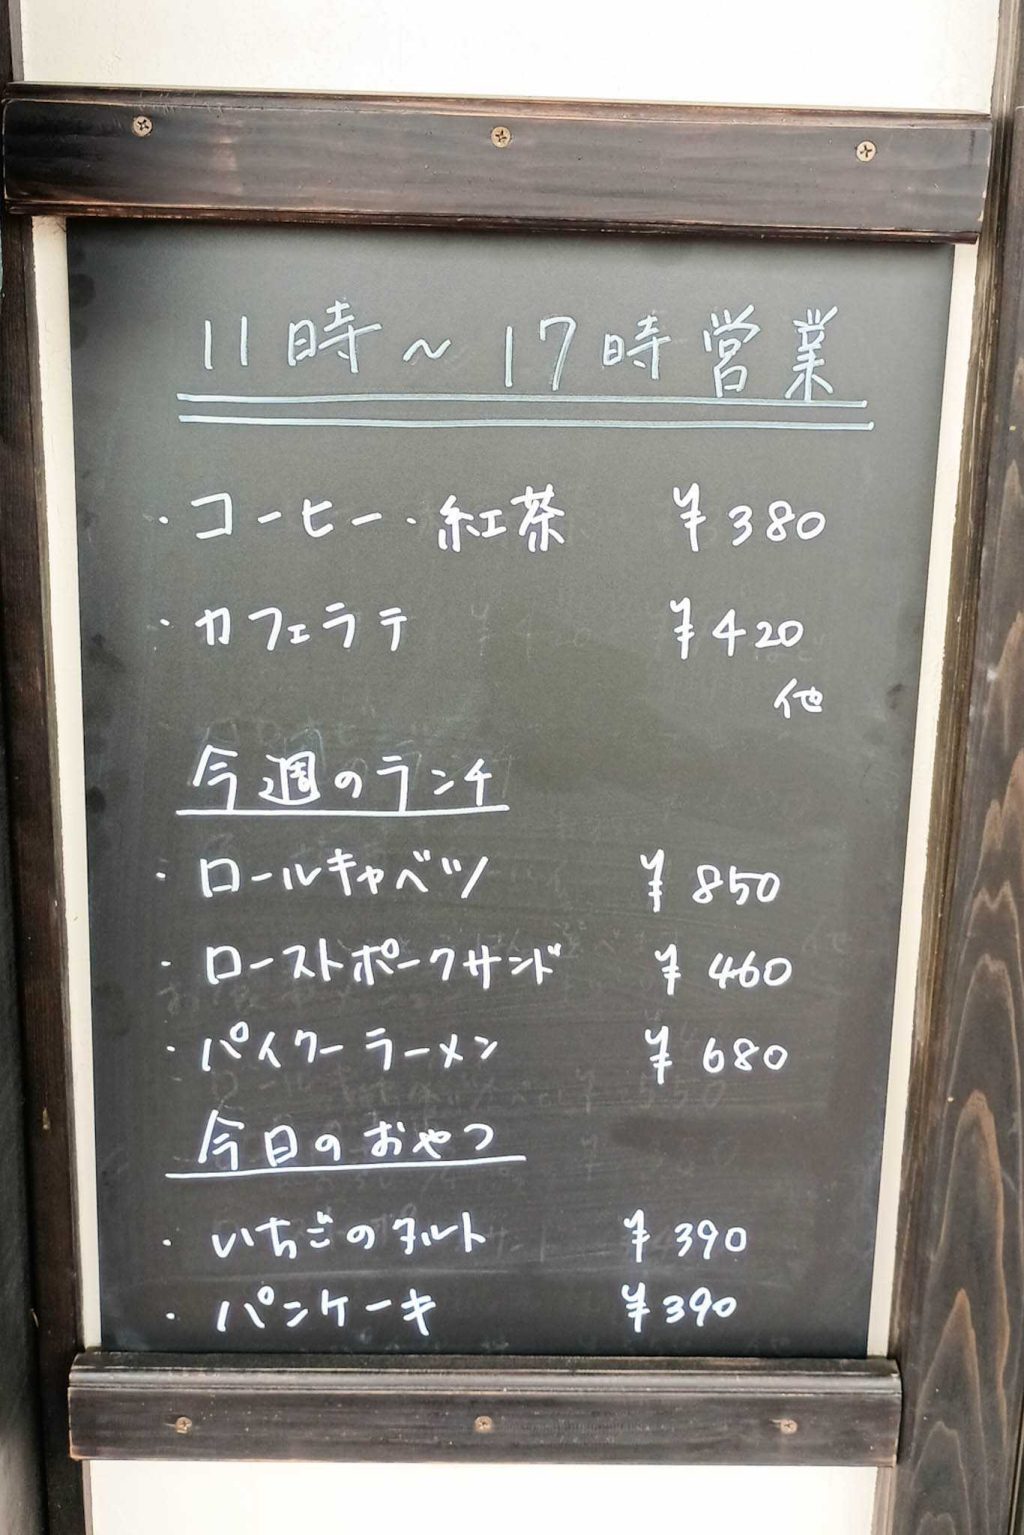 11時～17時営業
・コーヒー・紅茶 ¥380
・カフェラテ ¥420
他
今週のランチ
・ロールキャベツ ¥850
・ローストポークサンド ¥460
・パイクーラーメン ¥680
今日のおやつ
・いちごのタルト ¥390
・パンケーキ ¥390